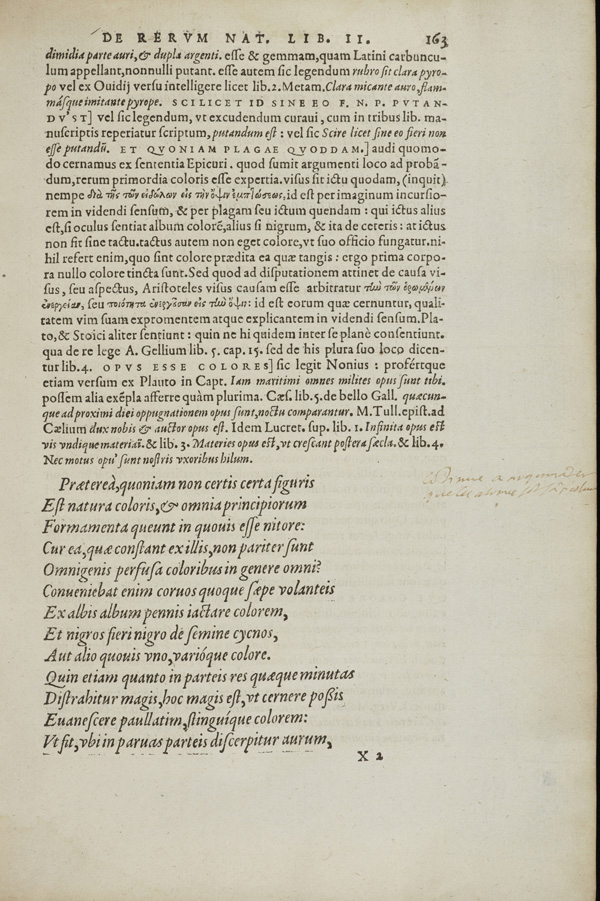 DE RERVM NAT. LIB. II. 163
dimidia parte auri, & dupla argenti. esse & gemmam, quam Latini carbuncu-
lum appellant, nonnulli putant. esse autem sic legendum rubro sit clara pyro-
po vel ex Ouidij versu intelligere licet lib. 2. Metam. Clara micante auro, flam-
másque imitante pyrope. SCILICET ID SINE EO F. N. P. PVTAN-
DV'ST] vel sic legendum, vt excudendum curaui, cum in tribus lib. ma-
nuscriptis reperiatur scriptum, putandum est: vel sic Scire licet sine eo fieri non
esse putandũ. ET QVONIAM PLAGAE QVODDAM.] audi quomo-
do cernamus ex sententia Epicuri. quod sumit argumenti loco ad probã-
dum, rerum primordia coloris esse expertia. visus fit ictu quodam, (inquit)
nempe διὰ τῆς τῶν εἰδώλων εἰς τὴν ὄψιν ἐμπτώσεως, id est per imaginum incursio-
rem in videndi sensum, & per plagam seu ictum quendam: qui ictus alius
est, si oculus sentiat album colorẽ, alius si nigrum, & ita de ceteris: at ictus
non fit sine tactu. tactus autem non eget colore, vt suo officio fungatur. ni-
hil refert enim, quo sint colore prædita ea quæ tangis: ergo prima corpo-
ra nullo colore tincta sunt. Sed quod ad disputationem attinet de causa vi-
sus, seu aspectus, Aristoteles visus causam esse arbitratur τὴν τῶν ὁρωμένων
ἐνέργειαν, seu ποιότητα ἐνεργοῦσαν εἰς τὴν ὄψιν: id est eorum quæ cernuntur, quali-
tatem vim suam expromentem atque explicantem in videndi sensum. Pla-
to, & Stoici aliter sentiunt: quin ne hi quidem inter se planè consentiunt.
qua de re lege A. Gellium lib. 5. cap. 15. sed de his plura suo loco dicen-
tur lib. 4. OPVS ESSE COLORES] sic legit Nonius: profértque
etiam versum ex Plauto in Capt. Iam maritimi omnes milites opus sunt tibi.
possem alia exẽpla afferre quàm plurima. Cæs. lib. 5. de bello Gall. quæcun-
que ad proximi diei oppugnationem opus sunt, noctu comparantur. M. Tull. epist. ad
Cælium dux nobis & auctor opus est. Idem Lucret. sup. lib. 1. Infinita opus est
vis vndique materiaï. & lib. 3. Materies opus est, vt crescant postera sæcla. & lib. 4.
Nec motus opu' sunt nostris vxoribus hilum.
Præterea, quoniam non certis certa figuris
Est natura coloris, & omnia principiorum
Formamenta queunt in quouis esse nitore:
Cur ea, quæ constant ex illis, non pariter sunt
Omnigenis perfusa coloribus in genere omni?
Conueniebat enim coruos quoque sæpe volanteis
Ex albis album pennis iactare colorem,
Et nigros fieri nigro de semine cycnos,
Aut alio quouis vno, varióque colore.
Quin etiam quanto in parteis res quæque minutas
Distrahitur magis, hoc magis est, vt cernere possis
Euanescere paullatim, stinguique colorem:
Vt fit, vbi in paruas parteis discerpitur aurum,
X 2